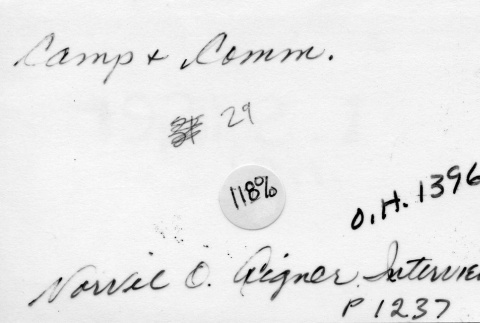 Camp & Comm.
# 29
118%
O.H. 1396
Norvil O. Aigner Interview
P 1237